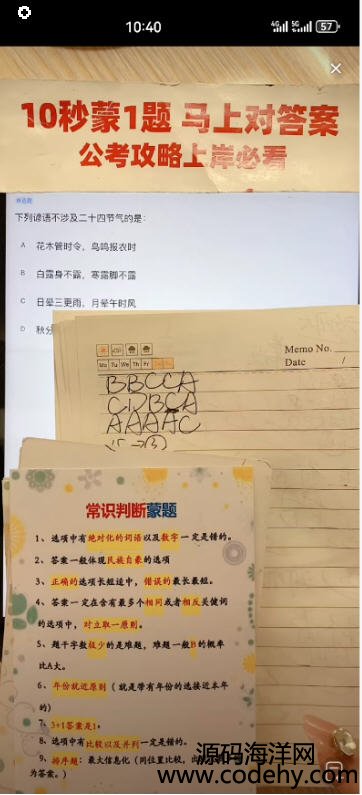 10:40
4G 5G 57
10秒蒙1题 马上对答案
公考攻略上岸必看
单选题
下列谚语不涉及二十四节气的是:
A 花木管时令，鸟鸣报农时
B 白露身不露，寒露脚不露
C 日晕三更雨，月晕午时风
D 秋分
Memo No.
Mo Tu We Th Fr
Date /
BBCCA
CDBCA
AAAAC
15→③
常识判断蒙题
1、选项中有绝对化的词语以及数字一定是错的。
2、答案一般体现民族自豪的选项
3、正确的选项长短适中，错误的最长最短。
4、答案一定在含有最多个相同或者相反关健词
的选项中，对立取一原则。
5、题干字数极少的是难题，难题一般B的概率
比A大。
6、年份就近原则（就是带有年份的选接近本年
的）
7、3+1答案是1。
8、选项中有比较以及并列一定是错的。
9、排序题：最大信息化（同位置比较，出
为答案。）
源码海洋网
www.codehy.com